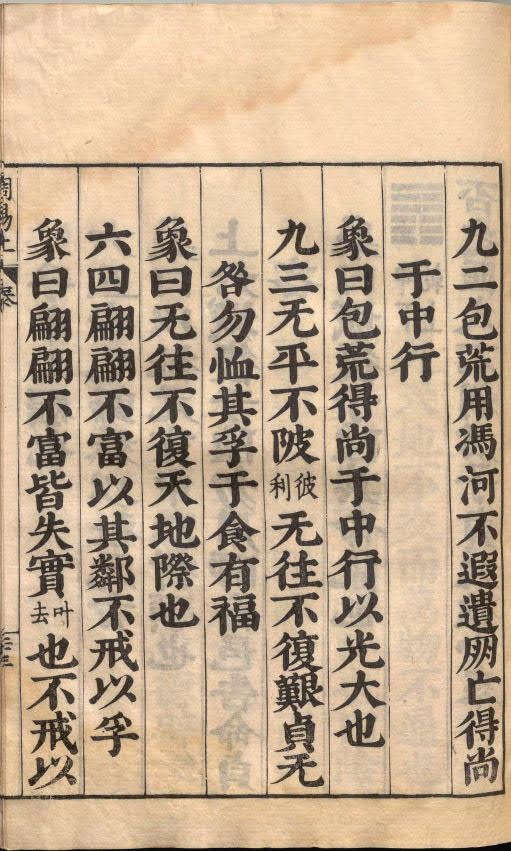 九二包荒用馮河不遐遺朋亡得尚
于中行
象曰包荒得尚于中行以光大也
九三无平不陂彼利无往不復艱貞无
咎勿恤其孚于食有福
象曰无往不復天地際也
六四翩翩不富以其鄰不戒以孚
象曰翩翩不富皆失實叶去也不戒以
周易上 泰